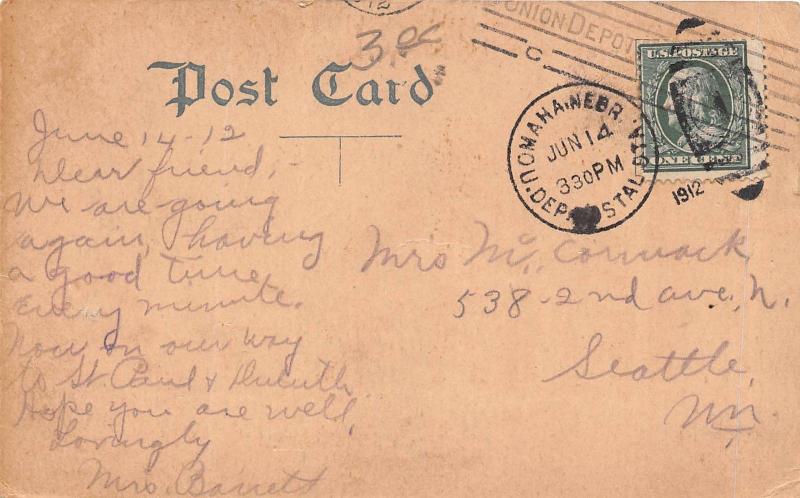 12
3.00
UNION DEPOT
C
U.S. POSTAGE
ONE CENT
OMAHA, NEBR.
JUN 14
3 30 PM
1912
U. DEP. POSTAL STA.
Post Card
June 14 - 12
Dear friend, -
We are going
again, having
a good time
every minute.
Now on our way
to St. Paul & Duluth
Hope you are well,
Lovingly
Mrs. Barrett
Mrs Mc Cormack
538 - 2nd ave. N.
Seattle,
Wn.